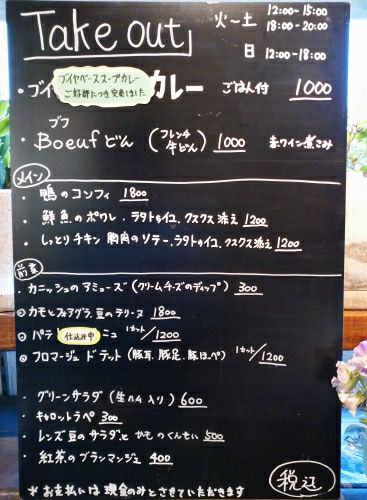 Take out
火〜土 12:00-15:00
18:00-20:00
日 12:00-18:00
・ブイ カレー ごはん付 1000
ブイヤベーススープカレー
ご好評につき完売しました
ブフ
・Boeufどん (フレンチ牛どん) 1000 赤ワイン煮こみ
メイン
・鴨のコンフィ 1800
・鮮魚のポワレ.ラタトゥイユ.クスクス添え 1200
・しっとりチキン 胸肉のソテー.ラタトゥイユ.クスクス添え 1200
前菜
・カニッシュのアミューズ(クリームチーズのディップ) 300
カモとフォアグラ.豆のテリーヌ 1800
パテ 仕込み中 ニュ 1カット/1200
フロマージュ ド テット(豚耳.豚足.豚ほっぺ) 1カット/1200
・グリーンサラダ(生ハム入り) 600
・キャロットラペ 300
・レンズ豆のサラダと かものくんせい 500
・紅茶のブランマンジェ 400
税込
＊お支払いは現金のみとさせていただきます